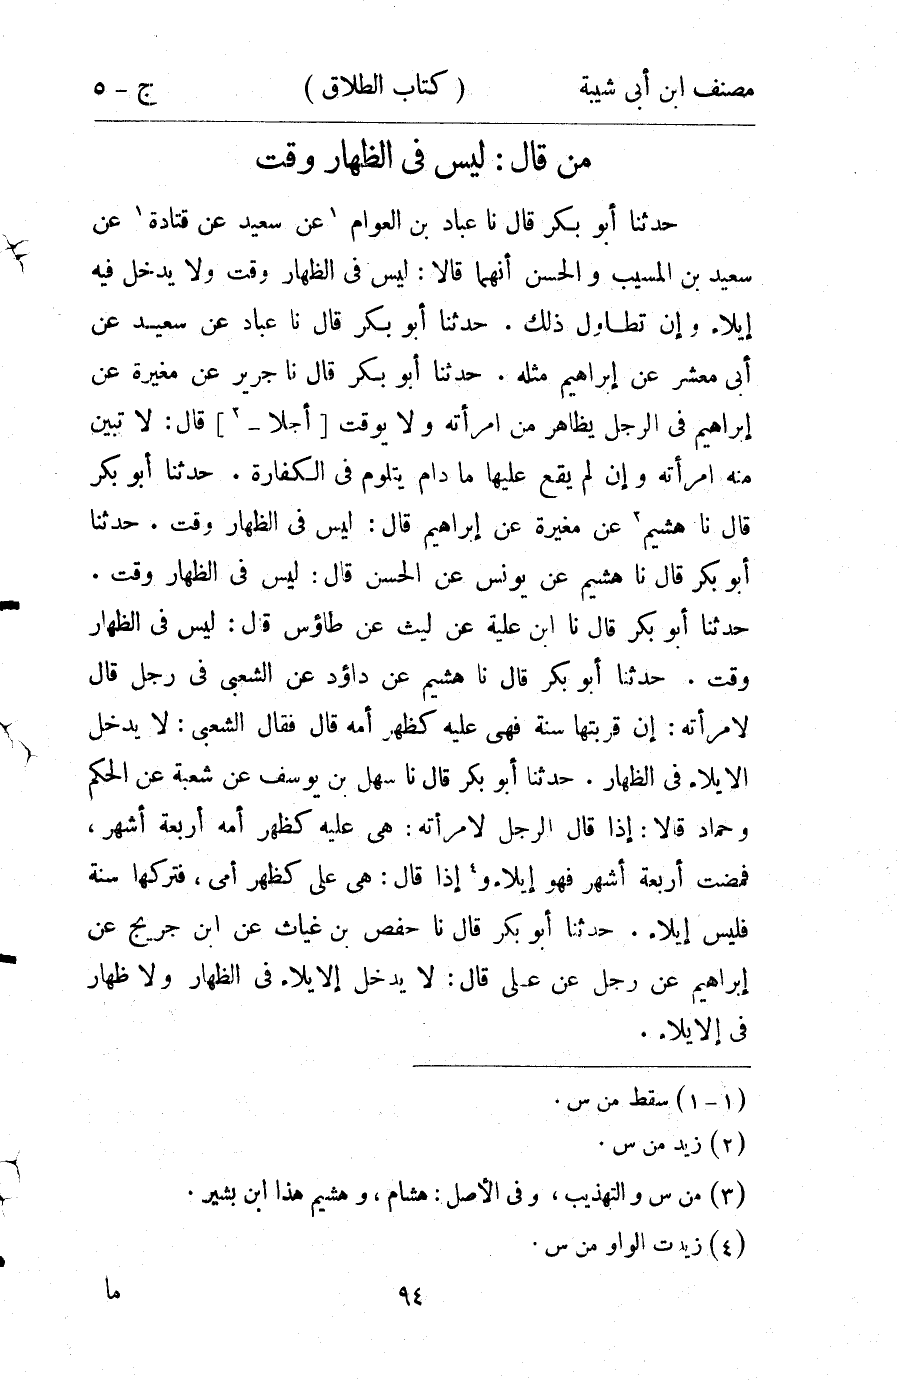 مصنف ابن أبى شيبة ( كتاب الطلاق ) ج - ٥
من قال : ليس فى الظهار وقت
حدثنا أبو بكر قال نا عباد بن العوام ١عن سعيد عن قتادة١ عن
سعيد بن المسيب و الحسن أنهما قالا : ليس فى الظهار وقت ولا يدخل فيه
إيلاء و إن تطاول ذلك . حدثنا أبو بكر قال نا عباد عن سعيد عن
أبى معشر عن إبراهيم مثله . حدثنا أبو بكر قال نا جرير عن مغيرة عن
إبراهيم فى الرجل يظاهر من امرأته و لا يوقت [ أجلا - ٢ ] قال : لا تبين
منه امرأته و إن لم يقع عليها ما دام يتلوم فى الكفارة . حدثنا أبو بكر
قال نا هشيم٣ عن مغيرة عن إبراهيم قال : ليس فى الظهار وقت . حدثنا
أبو بكر قال نا هشيم عن يونس عن الحسن قال : ليس فى الظهار وقت .
حدثنا أبو بكر قال نا ابن علية عن ليث عن طاؤس قال : ليس فى الظهار
وقت . حدثنا أبو بكر قال نا هشيم عن داؤد عن الشعبى فى رجل قال
لامرأته : إن قربتها سنة فهى عليه كظهر أمه قال فقال الشعبى : لا يدخل
الايلاء فى الظهار . حدثنا أبو بكر قال نا سهل بن يوسف عن شعبة عن الحكم
و حماد قالا : إذا قال الرجل لامرأته : هى عليه كظهر أمه أربعة أشهر ،
فمضت أربعة أشهر فهو إيلاء و٤ إذا قال : هى على كظهر أمى ، فتركها سنة
فليس إيلاء . حدثنا أبو بكر قال نا حفص بن غياث عن ابن جريج عن
إبراهيم عن رجل عن على قال : لا يدخل إلايلاء فى الظهار و لا ظهار
فى إلايلاء .
(١-١) سقط من س .
(٢) زيد من س .
(٣) من س و التهذيب ، و فى الأصل : هشام ، و هشيم هذا ابن بشير .
(٤) زيدت الواو من س .
٩٤ ما